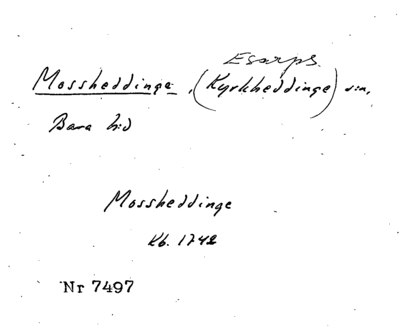 Esarps.
Mossheddinge, (Kyrkheddinge) s:n,
Bara hd
Mossheddinge
Kb. 1742
Nr 7497